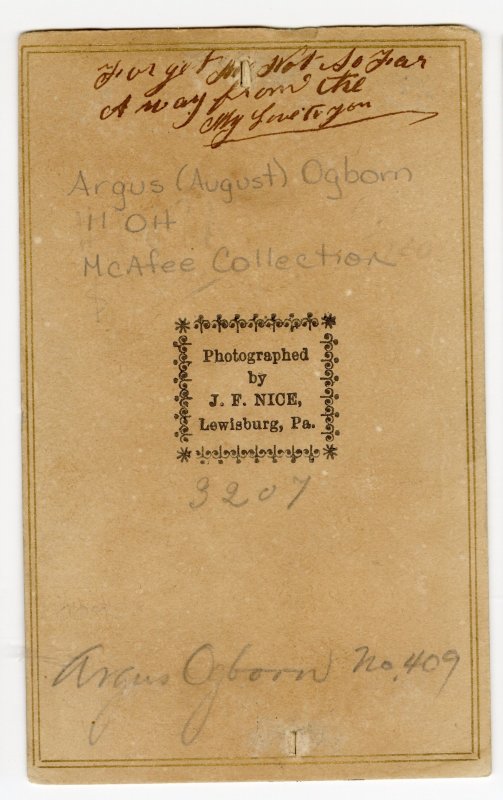 Forget Me Not So Far
Away from the
My Love to you
Argus (August) Ogborn
111 OH
McAfee Collection
Photographed
by
J. F. NICE,
Lewisburg, Pa.
3207
Argus Ogborn No. 409